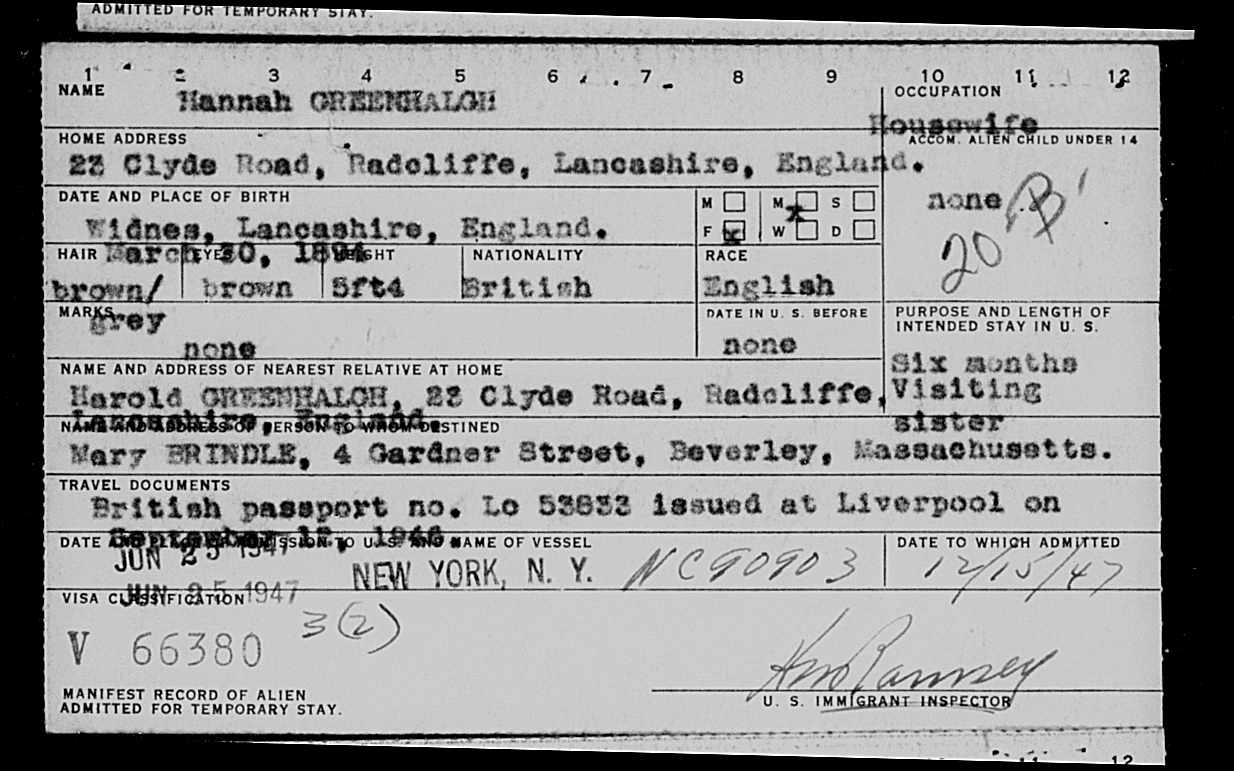 ADMITTED FOR TEMPORARY STAY.
1 2 3 4 5 6 7 8 9 10 11 12
NAME
Hannah GREENHALGH
OCCUPATION
Housewife
HOME ADDRESS
23 Clyde Road, Radcliffe, Lancashire, England.
ACCOM. ALIEN CHILD UNDER 14
none
20 B
DATE AND PLACE OF BIRTH
Widnes, Lancashire, England.
March 30, 1894
M M S
F x W x D
HAIR EYES HEIGHT NATIONALITY RACE
brown/ brown 5ft4 British English
grey
MARKS
none
DATE IN U. S. BEFORE
none
PURPOSE AND LENGTH OF
INTENDED STAY IN U. S.
Six months
Visiting
sister
NAME AND ADDRESS OF NEAREST RELATIVE AT HOME
Harold GREENHALGH, 23 Clyde Road, Radcliffe,
Lancashire, England.
NAME AND ADDRESS OF PERSON TO WHOM DESTINED
Mary BRINDLE, 4 Gardner Street, Beverley, Massachusetts.
TRAVEL DOCUMENTS
British passport no. Lo 53833 issued at Liverpool on
September 12, 1946.
DATE AND PLACE OF ADMISSION TO U.S. AND NAME OF VESSEL
JUN 25 1947
NEW YORK, N. Y. NC90903
DATE TO WHICH ADMITTED
12/15/47
VISA CLASSIFICATION
JUN 25 1947
3(2)
V 66380
Ramsey
U. S. IMMIGRANT INSPECTOR
MANIFEST RECORD OF ALIEN
ADMITTED FOR TEMPORARY STAY.
11 12